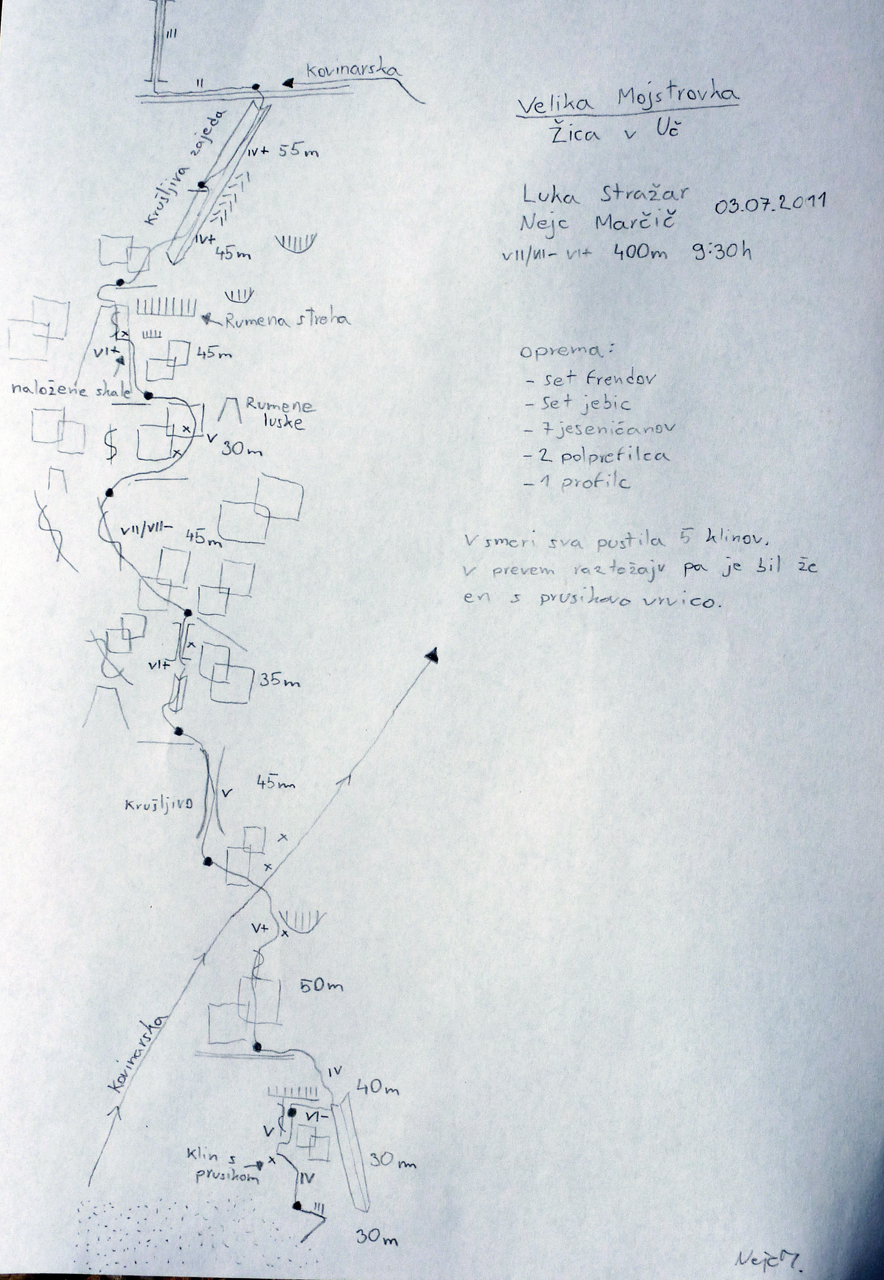 III
II
Kovinarska
Velika Mojstrovka
Žica v Uč
Krušljiva zajeda
IV+ 55m
Luka Stražar
03.07.2011
Nejc Marčič
VII/VII- VI+ 400m 9:30h
IV+
45m
Rumena streha
VI+
45m
naložene skale
oprema:
- set frendov
- set jebic
- 7 jeseničanov
- 2 polprefilca
- 1 profilc
Rumene
luske
V
30m
VII/VII-
45m
V smeri sva pustila 5 klinov,
v prevem raztežaju pa je bil že
en s prusikovo vrvico.
VI+
35m
Krušljivo
V
45m
V+
50m
Kovinarska
IV
40m
VI-
V
Klin s
prusikom
IV
30m
III
30m
Nejc M.